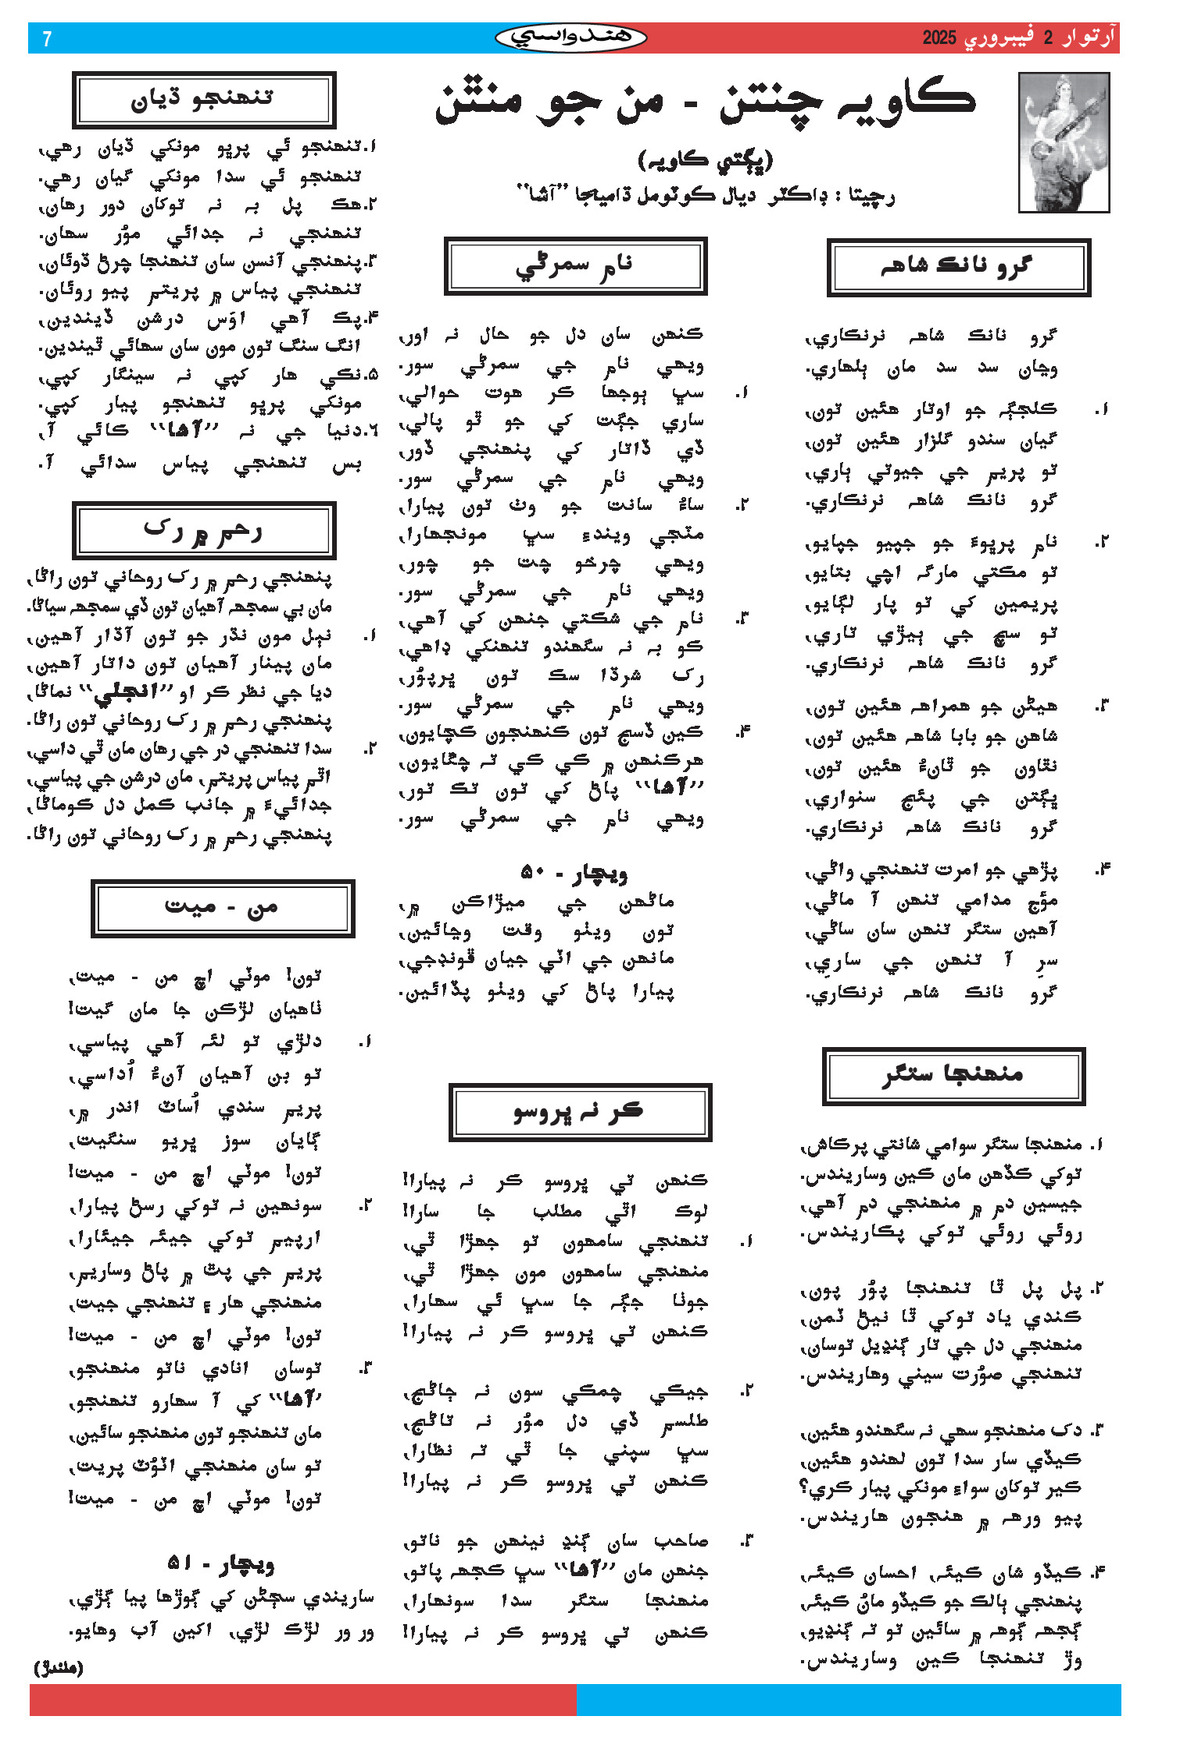 آرتوار 2 فيبروري 2025
هندواسي
7
ڪاويه چنتن - من جو منٿن
(ڀڳتي ڪاويه)
رچيتا : ڊاڪٽر ديال ڪوٽومل ڌاميڃا ”آشا“
گرو نانڪ شاهه
گرو نانڪ شاهه نرنڪاري،
وڃان سد سد مان ٻلهاري.
١. ڪلجڳہ جو اوتار هئين تون،
گيان سندو گلزار هئين تون،
تو پريم جي جيوتي ٻاري،
گرو نانڪ شاهه نرنڪاري.
٢. نام پرڀوءَ جو جپيو جپايو،
تو مڪتي مارگہ اچي بتايو،
پريمين کي تو پار لڳايو،
تو سڄ جي ٻيڙي تاري،
گرو نانڪ شاهه نرنڪاري.
٣. هيڻن جو همراهہ هئين تون،
شاهن جو بابا شاهہ هئين تون،
نڌاون جو ٿانءُ هئين تون،
ڀڳتن جي پئڄ سنواري،
گرو نانڪ شاهه نرنڪاري.
۴. پڙهي جو امرت تنهنجي واڻي،
موُج مدامي تنهن آ ماڻي،
آهين ستگر تنهن سان ساڻي،
سرِ آ تنهن جي ساري،
گرو نانڪ شاهه نرنڪاري.
منهنجا ستگر
١. منهنجا ستگر سوامي شانتي پرڪاش،
توکي ڪڏهن مان ڪين وساريندس.
جيسين دم ۾ منهنجي دم آهي،
روئي روئي توکي پڪاريندس.
٢. پل پل ٿا تنهنجا پوُر پون،
ڪندي ياد توکي ٿا نيڻ ٽمن،
منهنجي دل جي تار ڳنڍيل توسان،
تنهنجي صوُرت سيني وهاريندس.
٣. دک منهنجو سهي نہ سگهندو هئين،
ڪيڏي سار سدا تون لهندو هئين،
ڪير توکان سواءِ مونکي پيار ڪري؟
پيو ورهہ ۾ هنجون هاريندس.
۴. ڪيڏو شان ڪيئہ، احسان ڪيئہ،
پنهنجي ٻالڪ جو ڪيڏو مانُ ڪيئہ،
ڳجهہ ڳوهہ ۾ سائين تو تہ ڳنڍيو،
وڙ تنهنجا ڪين وساريندس.
نام سمرڻي
ڪنهن سان دل جو حال نہ اور،
ويهي نام جي سمرڻي سور.
١. سڀ ٻوجها ڪر هوت حوالي،
ساري جڳت کي جو ٿو پالي،
ڏي ڏاتار کي پنهنجي ڏور،
ويهي نام جي سمرڻي سور.
٢. ساءُ سانت جو وٺ تون پيارا،
متجي ويندءِ سڀ مونجهارا،
ويهي چرخو چت جو چور،
ويهي نام جي سمرڻي سور.
٣. نام جي شڪتي جنهن کي آهي،
ڪو بہ نہ سگهندو تنهنکي ڊاهي،
رک شرڌا سڪ تون ڀرپوُر،
ويهي نام جي سمرڻي سور.
۴. ڪين ڏسڄ تون ڪنهنجون ڪچايون،
هرڪنهن ۾ ڪي ڪي تہ چڱايون،
”آشا“ پاڻ کي تون تڪ تور،
ويهي نام جي سمرڻي سور.
ويچار - ۵۰
ماڻهن جي ميڙاڪن ۾،
تون ويٺو وقت وڃائين،
مانهن جي اٽي جيان ڦونڊجي،
پيارا پاڻ کي ويٺو پڏائين.
ڪر نہ ڀروسو
ڪنهن تي ڀروسو ڪر نہ پيارا!
لوڪ اٿي مطلب جا سارا!
١. تنهنجي سامهون تو جهڙا ٿي،
منهنجي سامهون مون جهڙا ٿي،
جوٺا جڳہ جا سڀ ئي سهارا،
ڪنهن تي ڀروسو ڪر نہ پيارا!
٢. جيڪي چمڪي سون نہ ڄاڻڄ،
طلسم ڏي دل موُر نہ تاڻڄ،
سڀ سپني جا ٿي تہ نظارا،
ڪنهن تي ڀروسو ڪر نہ پيارا!
٣. صاحب سان ڳنڍ نينهن جو ناتو،
جنهن مان ”آشا“ سڀ ڪجهہ پاتو،
منهنجا ستگر سدا سونهارا،
ڪنهن تي ڀروسو ڪر نہ پيارا!
تنهنجو ڌيان
١.تنهنجو ئي پرڀو مونکي ڌيان رهي،
تنهنجو ئي سدا مونکي گيان رهي.
٢.هڪ پل بہ نہ توکان دور رهان،
تنهنجي نہ جدائي موُر سهان.
٣.پنهنجي آنسن سان تنهنجا چرڻ ڌوئان،
تنهنجي پياس ۾ پريتم پيو روئان.
۴.پڪ آهي اوَس درشن ڏيندين،
انگ سنگ تون مون سان سهائي ٿيندين.
۵.نڪي هار کپي نہ سينگار کپي،
مونکي پرڀو تنهنجو پيار کپي.
٦.دنيا جي نہ ”آشا“ ڪائي آ،
بس تنهنجي پياس سدائي آ.
رحم ۾ رک
پنهنجي رحم ۾ رک روحاني تون راڻا،
مان بي سمجهہ آهيان تون ڏي سمجهہ سياڻا.
١. نٻل مون نڌر جو تون آڌار آهين،
مان پينار آهيان تون داتار آهين،
ديا جي نظر ڪر او ”انجلي“ نماڻا،
پنهنجي رحم ۾ رک روحاني تون راڻا.
٢. سدا تنهنجي در جي رهان مان ٿي داسي،
اٿم پياس پريتم، مان درشن جي پياسي،
جدائيءَ ۾ جانب ڪمل دل ڪوماڻا،
پنهنجي رحم ۾ رک روحاني تون راڻا.
من - ميت
تون! موٽي اچ من - ميت،
ٺاهيان لڙڪن جا مان گيت!
١. دلڙي تو لئہ آهي پياسي،
تو بن آهيان آنءُ اُداسي،
پريم سندي اُساٽ اندر ۾،
ڳايان سوز ڀريو سنگيت،
تون! موٽي اچ من - ميت!
٢. سونهين نہ توکي رسڻ پيارا،
ارپيم توکي جيئہ جيئارا،
پريم جي پٿ ۾ پاڻ وساريم،
منهنجي هار ۽ تنهنجي جيت،
تون! موٽي اچ من - ميت!
٣. توسان انادي ناتو منهنجو،
’آشا“ کي آ سهارو تنهنجو،
مان تنهنجو تون منهنجو سائين،
تو سان منهنجي اٽوُٽ پريت،
تون! موٽي اچ من - ميت!
ويچار - ۵١
ساريندي سڄڻن کي ڳوڙها پيا ڳڙي،
ور ور لڙڪ لڙي، اکين آب وهايو.
(هلندڙ)